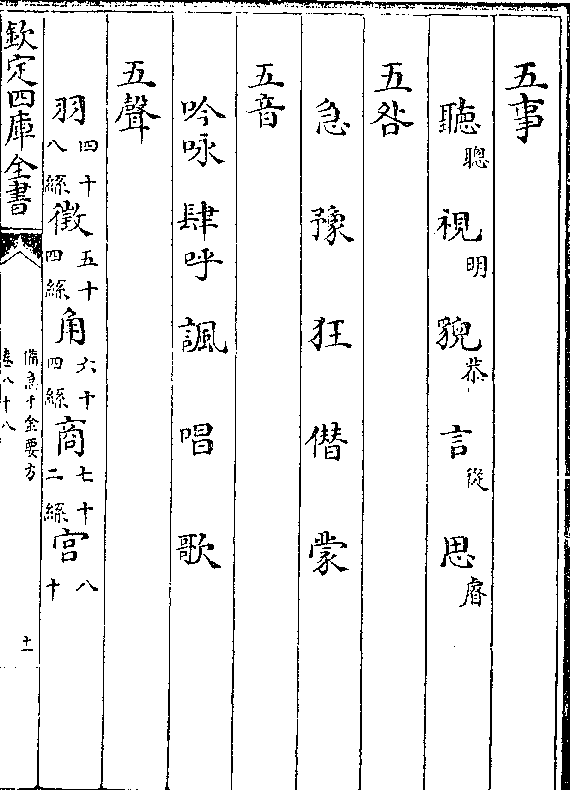 五事
聽聰視明貌恭言從思睿
五咎
急豫狂僭蒙
五音
吟咏肆呼諷唱歌
五聲
羽四十八絲徵五十四絲角六十四絲商七十二絲宮八十
欽定四庫全書
備急千金要方
卷八十八
十一